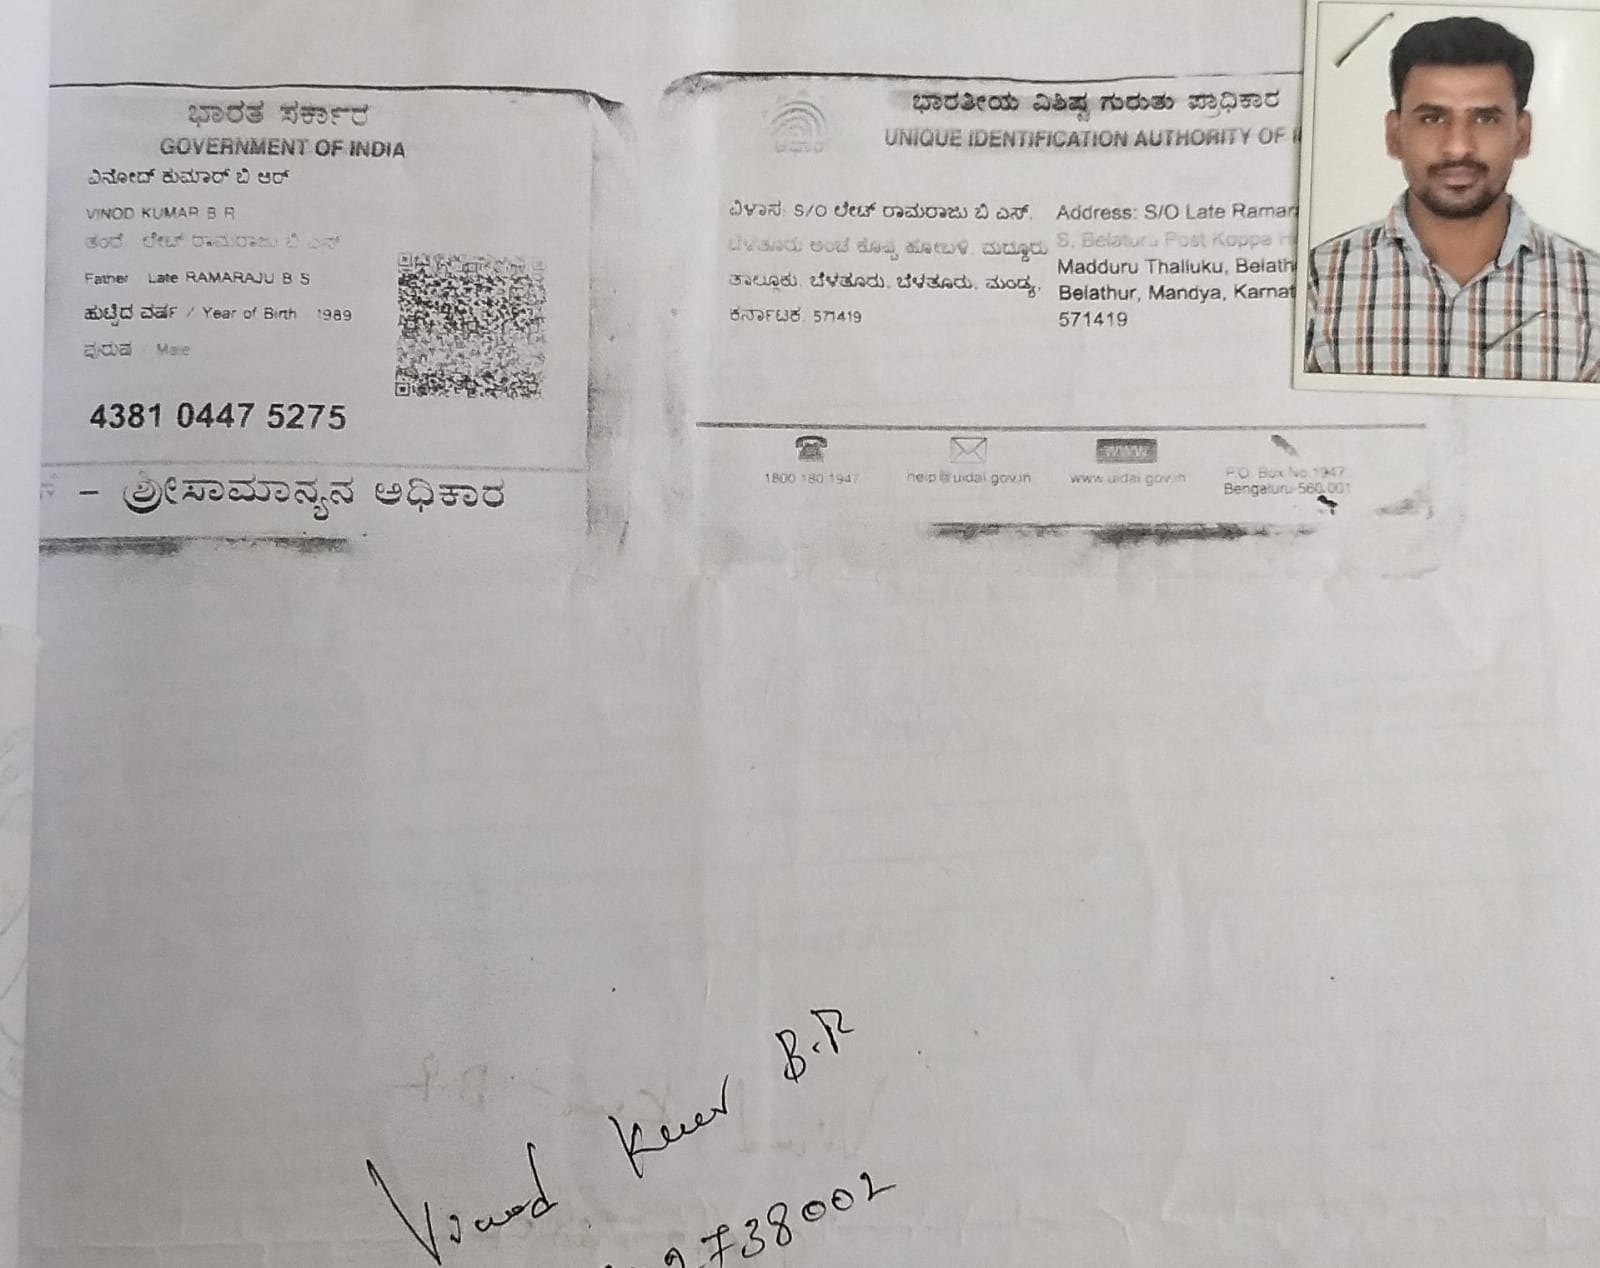 ಭಾರತ ಸರ್ಕಾರ
GOVERNMENT OF INDIA
ವಿನೋದ್ ಕುಮಾರ್ ಬಿ ಆರ್
VINOD KUMAR B R
ತಂದೆ: ಲೇಟ್ ರಾಮರಾಜು ಬಿ ಎಸ್
Father Late RAMARAJU B S
ಹುಟ್ಟಿದ ವರ್ಷ / Year of Birth 1989
ಪುರುಷ / Male
4381 0447 5275
– ಶ್ರೀಸಾಮಾನ್ಯನ ಅಧಿಕಾರ
ಭಾರತೀಯ ವಿಶಿಷ್ಟ ಗುರುತು ಪ್ರಾಧಿಕಾರ
UNIQUE IDENTIFICATION AUTHORITY OF
ವಿಳಾಸ: S/O ಲೇಟ್ ರಾಮರಾಜು ಬಿ ಎಸ್,
ಬೆಳತೂರು ಅಂಚೆ ಕೊಪ್ಪ ಹೋಬಳಿ, ಮದ್ದೂರು
ತಾಲ್ಲೂಕು, ಬೆಳತೂರು, ಬೆಳತೂರು, ಮಂಡ್ಯ,
ಕರ್ನಾಟಕ, 571419
Address: S/O Late Ramar
S, Belaturu Post Koppa H
Madduru Thalluku, Belath
Belathur, Mandya, Karnat
571419
1800 180 1947
help@uidai.gov.in
www
www.uidai.gov.in
P.O. Box No.1947,
Bengaluru-560 001
Vinod Kumar B.R
2738002